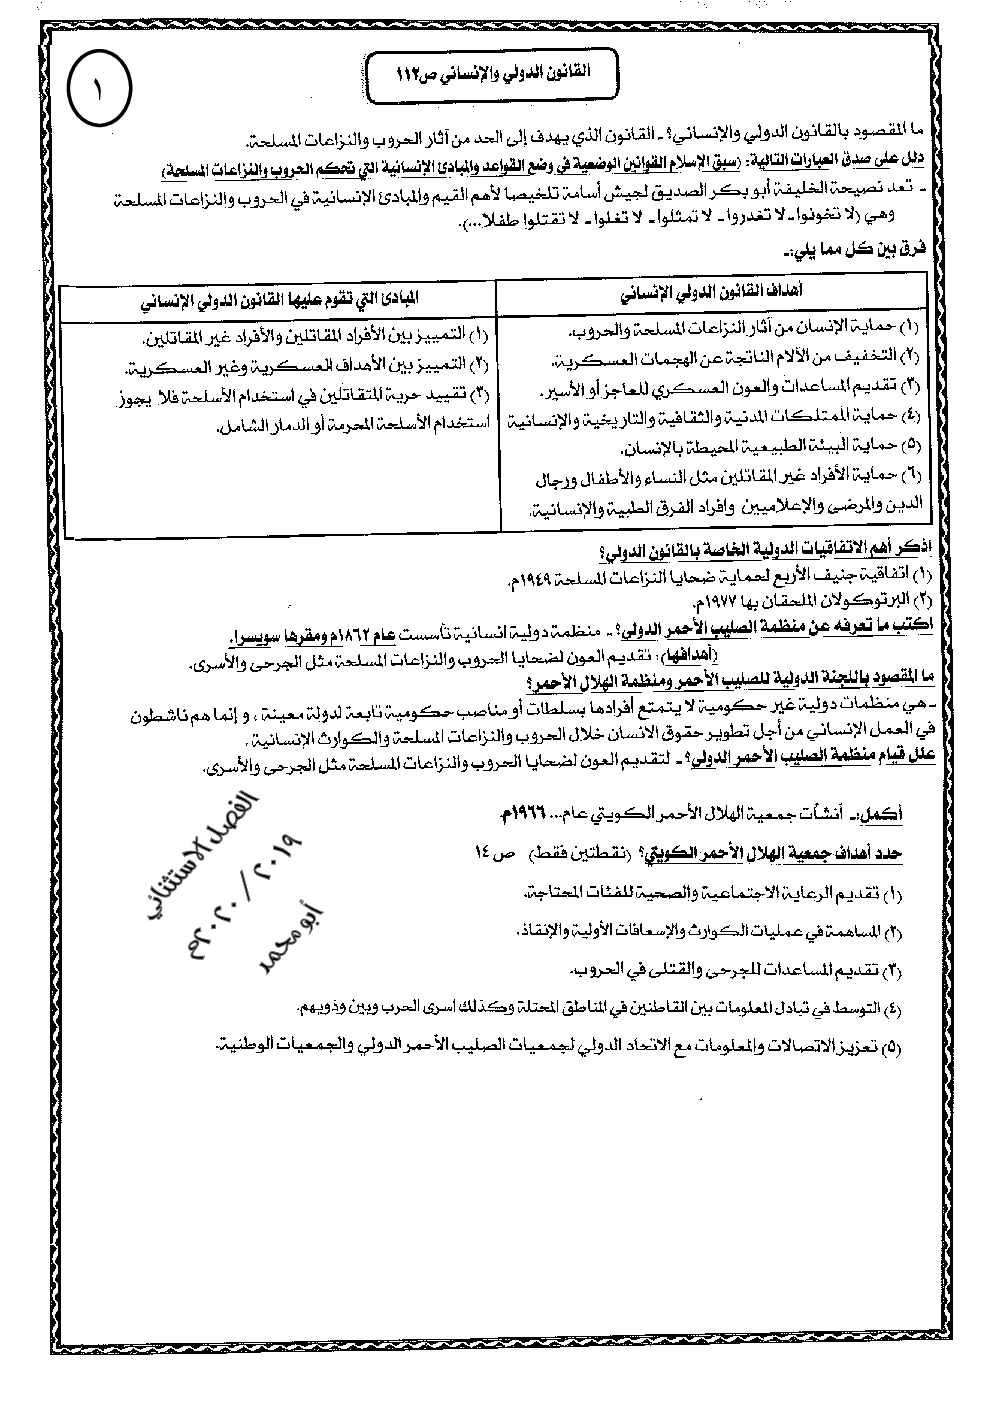 ١
القانون الدولي والإنساني ص١١٢
ما المقصود بالقانون الدولي والإنساني؟ ـ القانون الذي يهدف إلى الحد من آثار الحروب والنزاعات المسلحة.
دلل على صدق العبارات التالية: (سبق الإسلام القوانين الوضعية في وضع القواعد والمبادئ الإنسانية التي تحكم الحروب والنزاعات المسلحة)
ـ تعد نصيحة الخليفة أبو بكر الصديق لجيش أسامة تلخيصا لأهم القيم والمبادئ الإنسانية في الحروب والنزاعات المسلحة
وهي (لا تخونوا ـ لا تغدروا ـ لا تمثلوا ـ لا تغلوا ـ لا تقتلوا طفلا...).
فرق بين كل مما يلي:ـ
أهداف القانون الدولي الإنساني
(١) حماية الإنسان من آثار النزاعات المسلحة والحروب.
(٢) التخفيف من الآلام الناتجة عن الهجمات العسكرية.
(٣) تقديم المساعدات والعون العسكري للعاجز أو الأسير.
(٤) حماية الممتلكات المدنية والثقافية والتاريخية والإنسانية
(٥) حماية البيئة الطبيعية المحيطة بالإنسان.
(٦) حماية الأفراد غير المقاتلين مثل النساء والأطفال ورجال
الدين والمرضى والإعلاميين وافراد الفرق الطبية والإنسانية.
المبادئ التي تقوم عليها القانون الدولي الإنساني
(١) التمييز بين الأفراد المقاتلين والأفراد غير المقاتلين.
(٢) التمييز بين الأهداف العسكرية وغير العسكرية.
(٣) تقييد حرية المتقاتلين في استخدام الأسلحة فلا يجوز
استخدام الأسلحة المحرمة أو الدمار الشامل.
اذكر أهم الاتفاقيات الدولية الخاصة بالقانون الدولي؟
(١) اتفاقية جنيف الأربع لحماية ضحايا النزاعات المسلحة ١٩٤٩م.
(٢) البرتوكولان الملحقان بها ١٩٧٧م.
اكتب ما تعرفه عن منظمة الصليب الأحمر الدولي؟ ـ منظمة دولية انسانية تأسست عام ١٨٦٢م ومقرها سويسرا.
(أهدافها): تقديم العون لضحايا الحروب والنزاعات المسلحة مثل الجرحى والأسرى.
ما المقصود باللجنة الدولية للصليب الأحمر ومنظمة الهلال الأحمر؟
ـ هي منظمات دولية غير حكومية لا يتمتع أفرادها بسلطات أو مناصب حكومية تابعة لدولة معينة ، و إنما هم ناشطون
في العمل الإنساني من أجل تطوير حقوق الانسان خلال الحروب والنزاعات المسلحة والكوارث الإنسانية .
علل قيام منظمة الصليب الأحمر الدولي؟ ـ لتقديم العون لضحايا الحروب والنزاعات المسلحة مثل الجرحى والأسرى.
أكمل:ـ أنشأت جمعية الهلال الأحمر الكويتي عام... ١٩٦٦م.
حدد أهداف جمعية الهلال الأحمر الكويتي؟ (نقطتين فقط) ص ١٤
(١) تقديم الرعاية الاجتماعية والصحية للفئات المحتاجة.
(٢) المساهمة في عمليات الكوارث والإسعافات الأولية والإنقاذ.
(٣) تقديم المساعدات للجرحى والقتلى في الحروب.
(٤) التوسط في تبادل المعلومات بين القاطنين في المناطق المحتلة وكذلك اسرى الحرب وبين وذويهم.
(٥) تعزيز الاتصالات والمعلومات مع الاتحاد الدولي لجمعيات الصليب الأحمر الدولي والجمعيات الوطنية.
الفصل الاستثنائي
٢٠١٩ / ٢٠٢٠م
أبو محمد